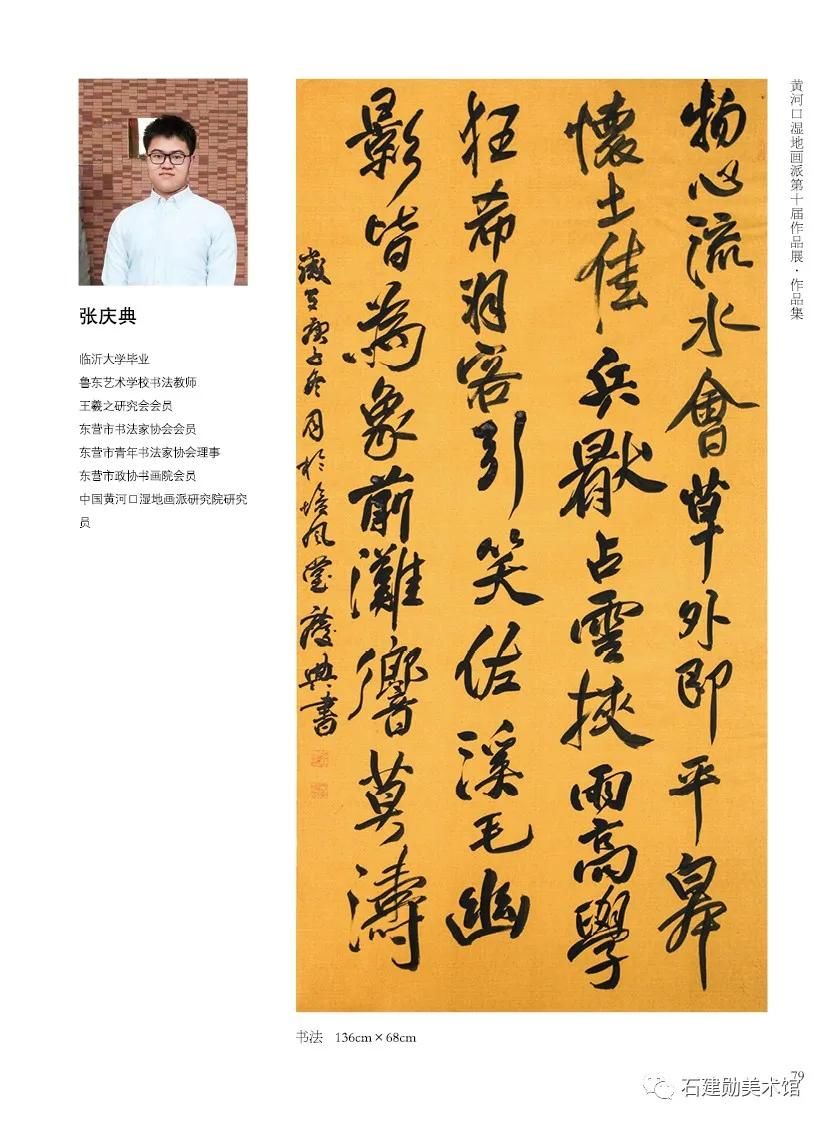 黄河口湿地画派第十届作品展·作品集
物心流水會草外即平皋
懷土佳兵厭占雲挾雨高學
狂希羽客引笑佐溪毛幽
影皆為象前灘響莫濤
庚子冬月於培风堂慶典書
张庆典
临沂大学毕业
鲁东艺术学校书法教师
王羲之研究会会员
东营市书法家协会会员
东营市青年书法家协会理事
东营市政协书画院会员
中国黄河口湿地画派研究院研究
员
书法 136cm×68cm
79
石建勋美术馆